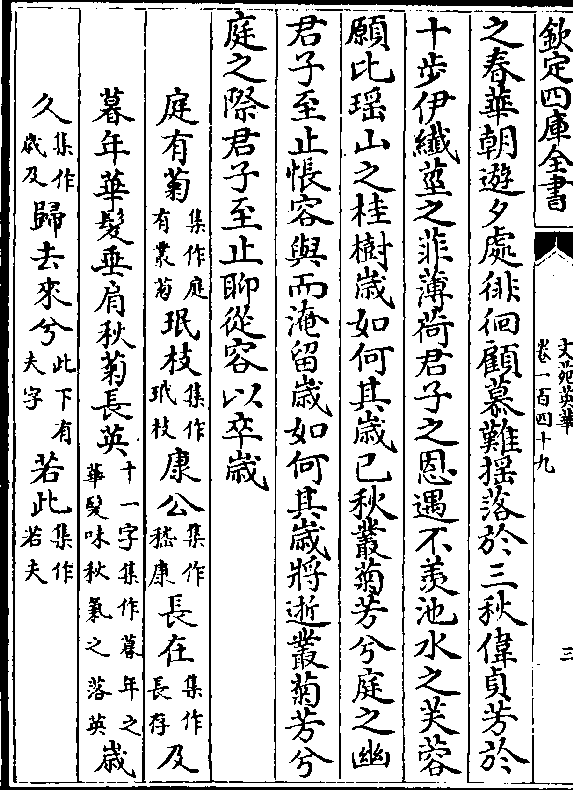 欽定四庫全書
文苑英華
卷一百四十九
三
之春華朝遊夕處徘徊顧慕難揺落於三秋偉貞芳於
十步伊纖莖之菲薄荷君子之恩遇不羨池水之芙蓉
願比瑶山之桂樹歳如何其歳已秋叢菊芳兮庭之幽
君子至止悵容與而淹留歳如何其歳將逝叢菊芳兮
庭之際君子至止聊從容以卒歳
庭有菊集作庭有叢菊珉枝集作珉枝康公集作嵇康長在集作長存及
暮年華髮垂肩秋菊長英十一字集作暮年之華髮味秋氣之落英歳
久集作歳及歸去來兮此下有夫字若此集作若夫